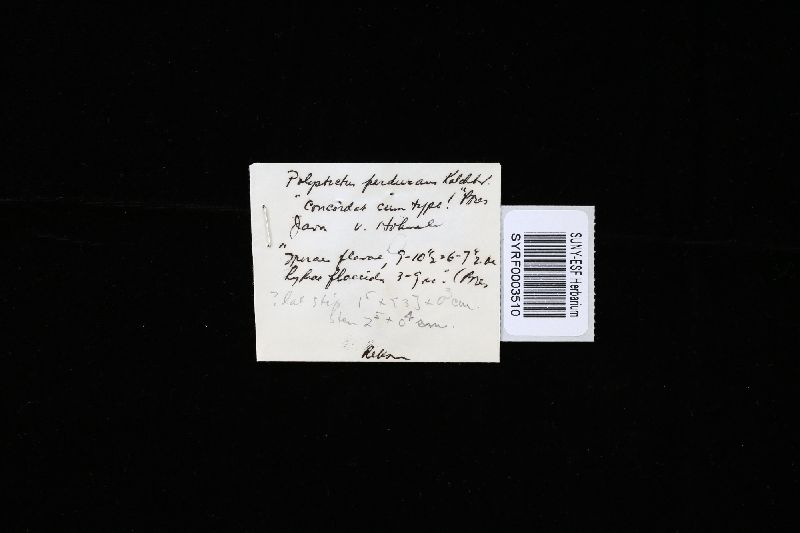 Polystictus perdurans Kalchbr.
"concordat cum type!" Bres
Java v. Höhnel
"Sporae flavae, 9-10½ = 6-7½ m
hyphae floccida 3-9 m". (Bres
? lat stip 1⁵ x [3] x 0³ cm.
Stem 2⁵ x 0⁴ cm.
Return
SUNY-ESF Herbarium
SYRF0003510